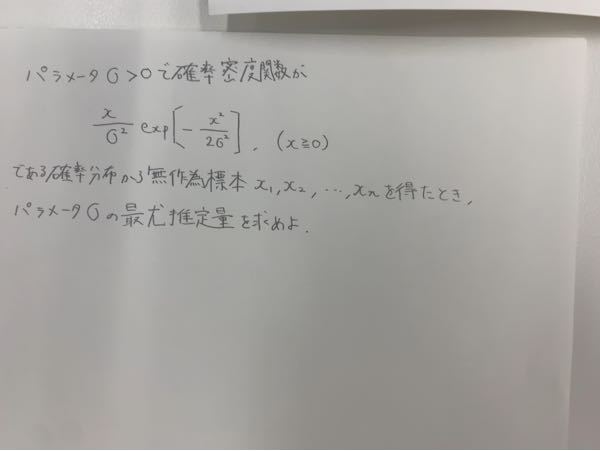 パラメータσ>0で確率密度関数が
x/σ² exp[-x²/2σ²], (x≧0)
である確率分布から無作為標本 x₁,x₂,…,xₙを得たとき,
パラメータσの最尤推定量を求めよ.